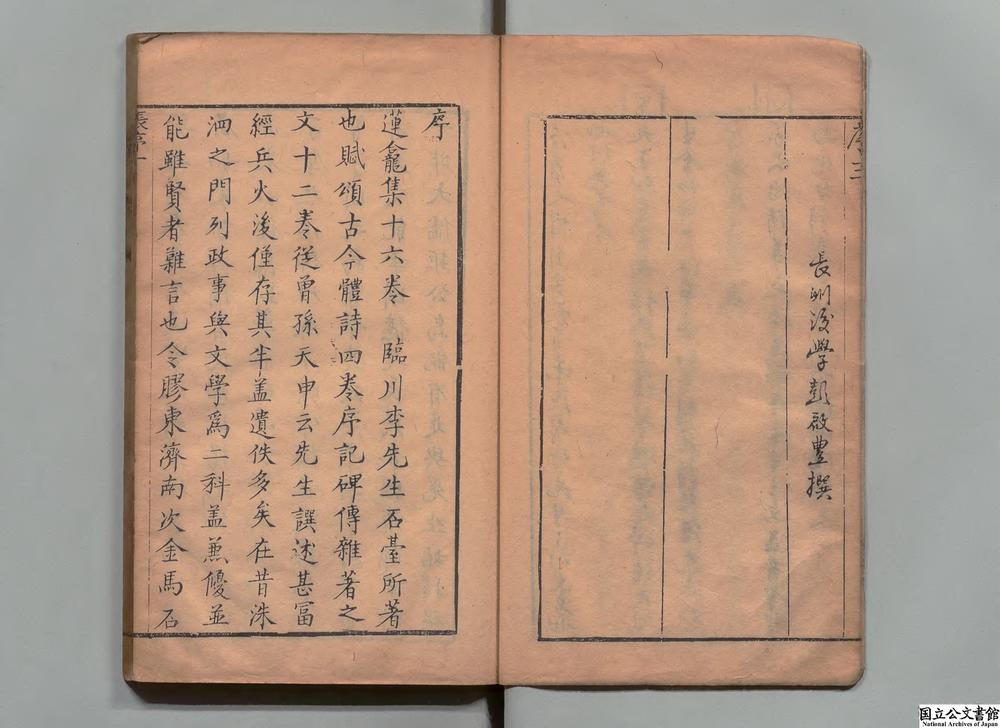 序三
長洲後學彭啟豐撰
序
蓮龕集十六卷臨川李先生石臺所著
也賦頌古今體詩四卷序記碑傳雜著之
文十二卷從曾孫天申云先生譔述甚富
經兵火後僅存其半盖遺佚多矣在昔洙
泗之門列政事與文學為二科盖兼優並
能雖賢者難言也今膠東濟南次金馬石
張序一
国立公文書館
National Archives of Japan